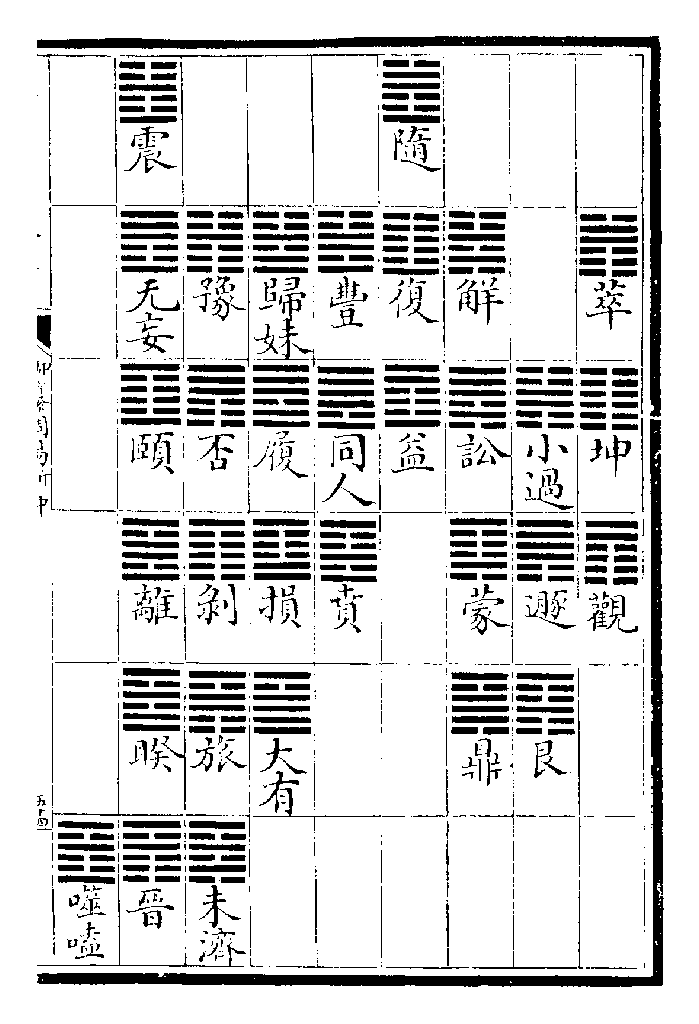 萃
坤
觀
小過
遯
艮
解
訟
蒙
鼎
隨
復
益
豐
同人
賁
歸妹
履
損
大有
豫
否
剝
旅
未濟
震
无妄
頤
離
睽
晉
噬嗑
御纂周易折中
五十四